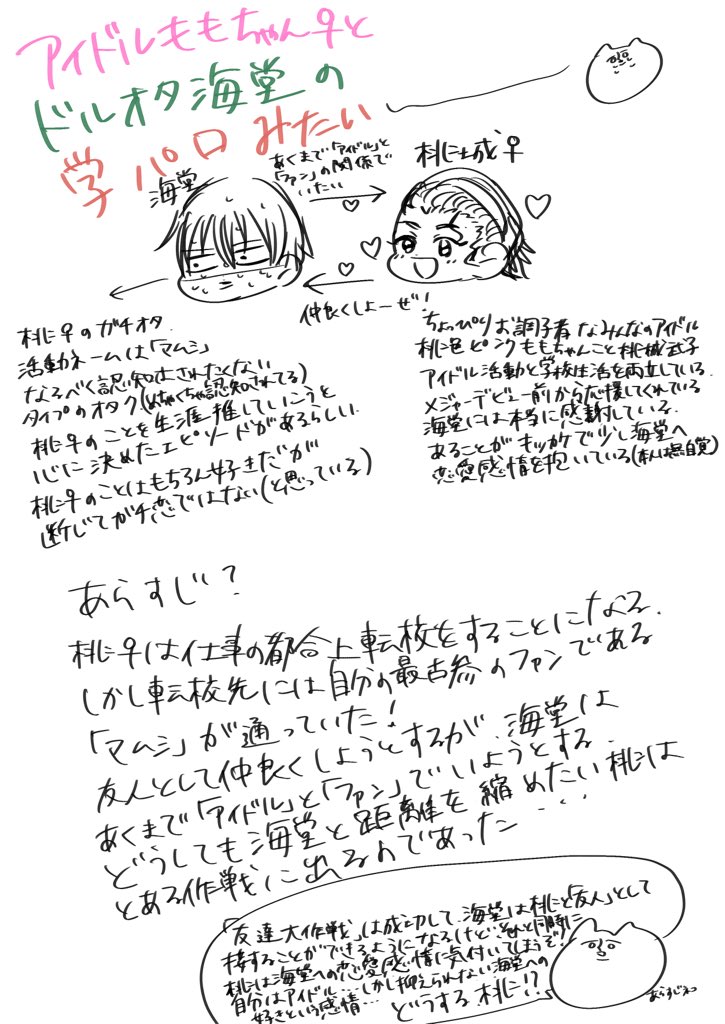 アイドルももちゃん♀と
ドルオタ海堂の
学パロみたい
海堂
あくまで「アイドル」と
「ファン」の関係で
いたい
桃城♀
仲良くしよーぜ!
桃♀のガチオタ
活動ネームは「マムシ」
なるべく認知はされたくない
タイプのオタク(めちゃくちゃ認知されてる)
桃♀のことを生涯推していこうと
心に決めたエピソードがあるらしい
桃♀のことはもちろん好きだが
断じてガチ恋ではない(と思っている)
ちょっぴりお調子者なみんなのアイドル
桃色ピンクももちゃんこと桃城武子
アイドル活動と学校生活を両立している
メジャーデビュー前から応援してくれている
海堂には本当に感謝している
あることがキッカケで少し海堂へ
恋愛感情を抱いている(本人は無自覚)
あらすじ?
桃♀は仕事の都合上転校をすることになる
しかし転校先には自分の最古参のファンである
「マムシ」が通っていた!
友人として仲良くしようとするが、海堂は
あくまで「アイドル」と「ファン」でいようとする
どうしても海堂と距離を縮めたい桃は
とある作戦に出るのであった…
「友達大作戦」は成功して、海堂は桃と「友人」として
接することができるようになるけど、それと同時に
桃は海堂への恋愛感情に気付いてしまうぞ!
自分はアイドル…しかし抑えられない海堂への
好きという感情… どうする桃!?
あらすじわ